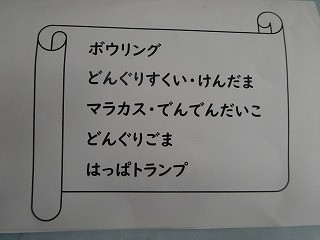 ボウリング
どんぐりすくい・けんだま
マラカス・でんでんだいこ
どんぐりごま
はっぱトランプ